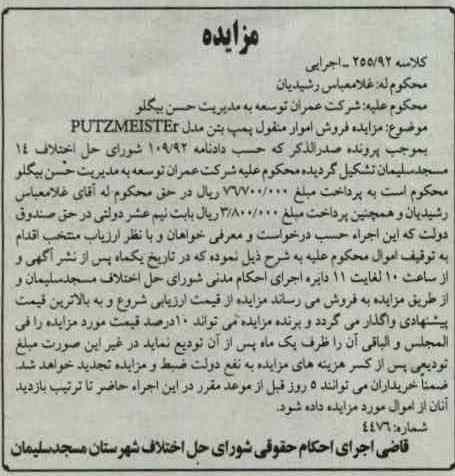 مزایده
کلاسه ۲۵۵/۹۲ ـ اجرایی
محکوم له: غلامعباس رشیدیان
محکوم علیه: شرکت عمران توسعه به مدیریت حسن بیگلو
موضوع: مزایده فروش اموار منقول پمپ بتن مدل PUTZMEISTEr
بموجب پرونده صدرالذکر که حسب دادنامه ۱۰۹/۹۲ شورای حل اختلاف ۱۴
مسجدسلیمان تشکیل گردیده محکوم علیه شرکت عمران توسعه به مدیریت حسن بیگلو
محکوم است به پرداخت مبلغ ۷۶/۷۰۰/۰۰۰ ریال در حق محکوم له آقای غلامعباس
رشیدیان و همچنین پرداخت مبلغ ۳/۸۰۰/۰۰۰ ریال بابت نیم عشر دولتی در حق صندوق
دولت که این اجراء حسب درخواست و معرفی خواهان و با نظر ارزیاب منتخب اقدام
به توقیف اموال محکوم علیه به شرح ذیل نموده که در تاریخ یکماه پس از نشر آگهی و
از ساعت ۱۰ لغایت ۱۱ دایره اجرای احکام مدنی شورای حل اختلاف مسجدسلیمان و
از طریق مزایده به فروش می رساند مزایده از قیمت ارزیابی شروع و به بالاترین قیمت
پیشنهادی واگذار می گردد و برنده مزایده می تواند ۱۰درصد قیمت مورد مزایده را فی
المجلس و الباقی آن را ظرف یک ماه پس از آن تودیع نماید در غیر این صورت مبلغ
تودیعی پس از کسر هزینه های مزایده به نفع دولت ضبط و مزایده تجدید خواهد شد.
ضمنا خریداران می توانند ۵ روز قبل از موعد مقرر در این اجراء حاضر تا ترتیب بازدید
آنان از اموال مورد مزایده داده شود.
شماره: ۴۴۷۶
قاضی اجرای احکام حقوقی شورای حل اختلاف شهرستان مسجدسلیمان